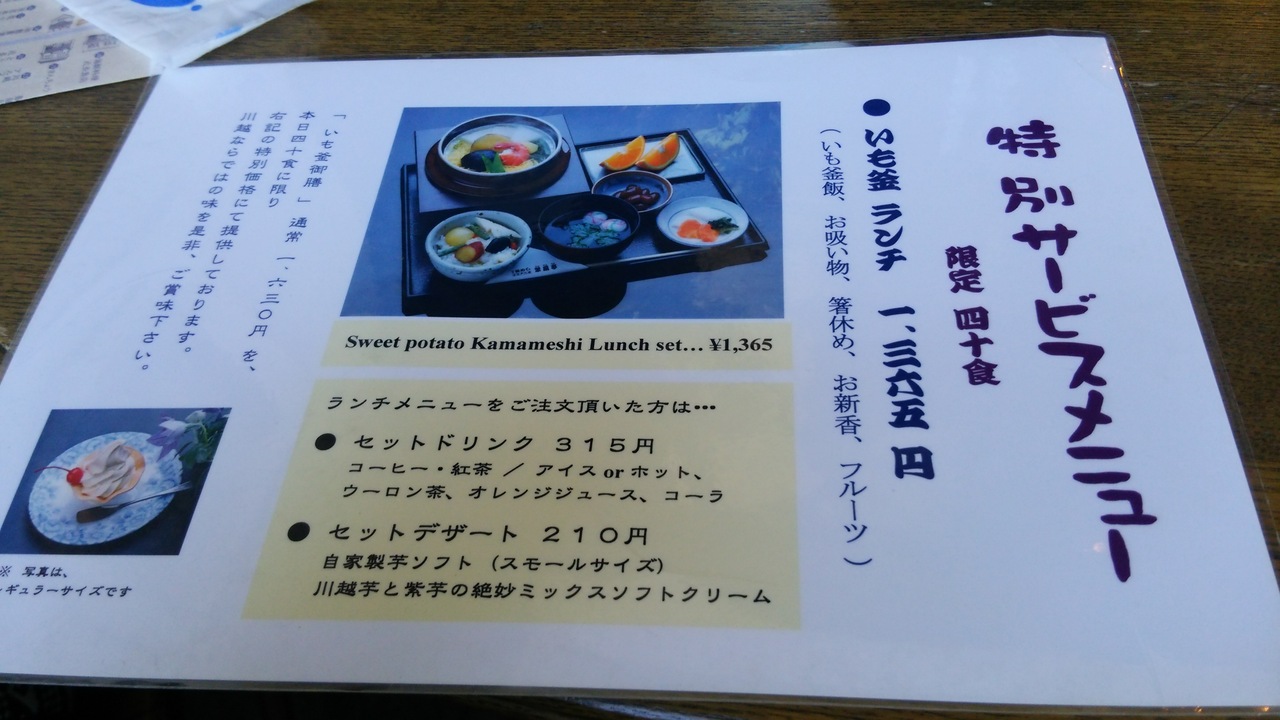 特別サービスメニュー
限定 四十食
●いも釜 ランチ 一、三六五 円
(いも釜飯、お吸い物、箸休め、お新香、フルーツ)
Sweet potato Kamameshi Lunch set… ¥1,365
ランチメニューをご注文頂いた方は…
● セットドリンク 315円
コーヒー・紅茶 / アイス or ホット、
ウーロン茶、オレンジジュース、コーラ
● セットデザート 210円
自家製芋ソフト (スモールサイズ)
川越芋と紫芋の絶妙ミックスソフトクリーム
「いも釜御膳」 通常 一、六三〇円 を、
本日四十食に限り
右記の特別価格にて提供しております。
川越ならではの味を是非、ご賞味下さい。
※ 写真は、
ギュラーサイズです